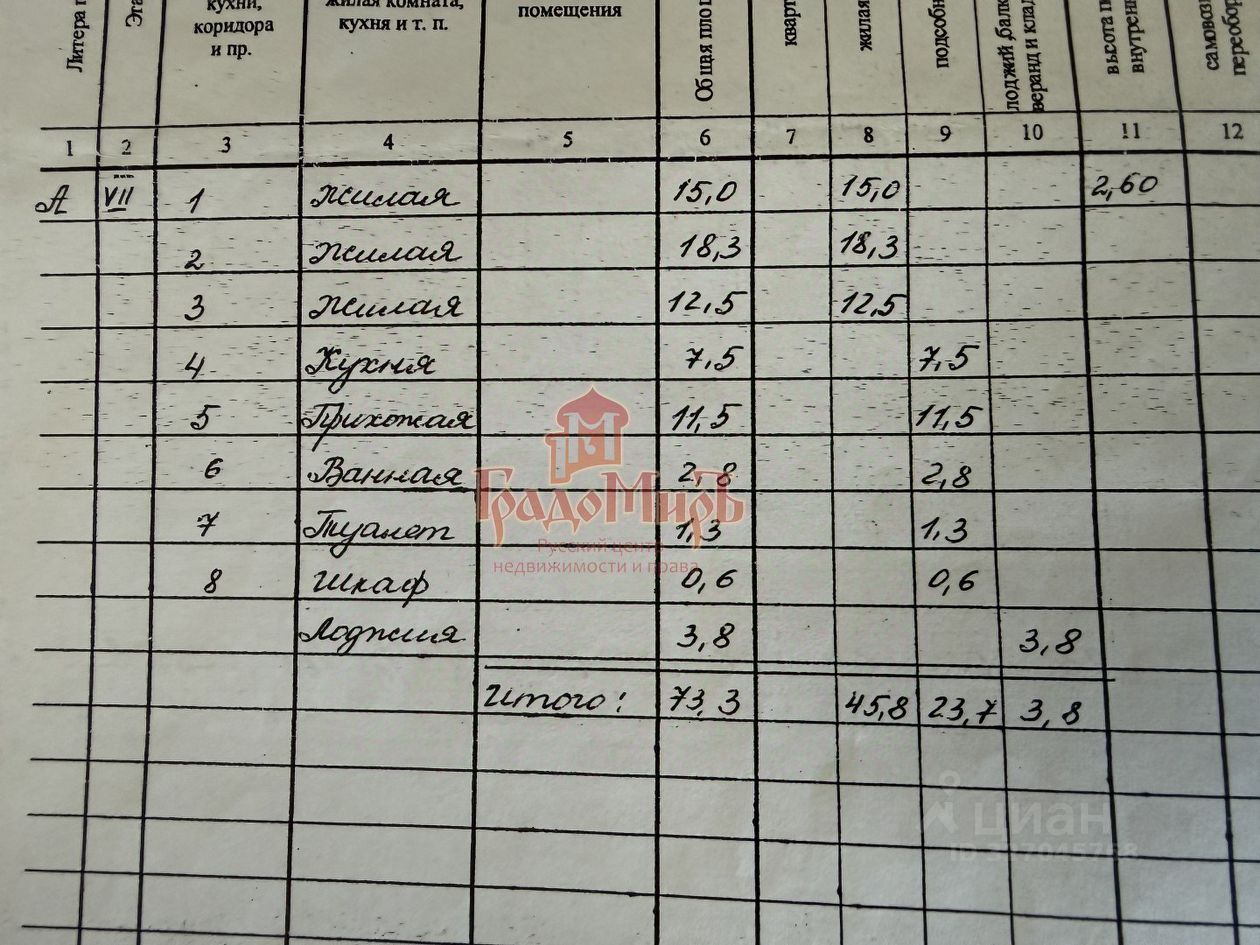 Литера п
Эта
кухни,
коридора
и пр.
жилая комната,
кухня и т. п.
помещения
Общая площ
кварт
жилая
подсобн
лоджий, балк
веранд и клад
высота п
внутренн
самовоз
переобор
1 2 3 4 5 6 7 8 9 10 11 12
А VII 1 Жилая 15,0 15,0 2,60
2 Жилая 18,3 18,3
3 Жилая 12,5 12,5
4 Кухня 7,5 7,5
5 Прихожая 11,5 11,5
6 Ванная 2,8 2,8
7 Туалет 1,3 1,3
8 Шкаф 0,6 0,6
Лоджия 3,8 3,8
Итого: 73,3 45,8 23,7 3,8
ГрадоМиръ
Русский центр
недвижимости и права
циан